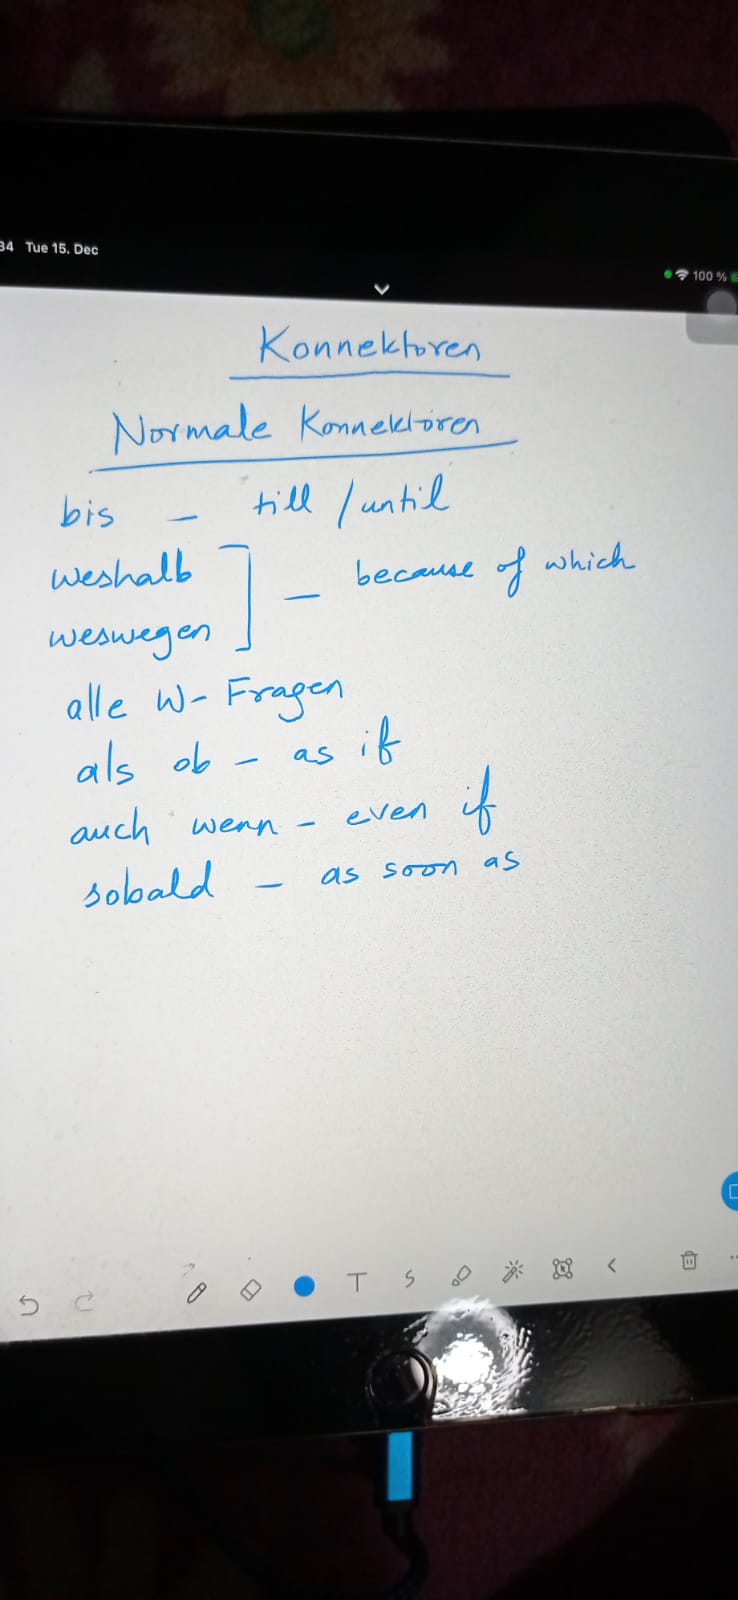 34 Tue 15. Dec
100 %
Konnektoren
Normale Konnektoren
bis - till / until
weshalb
weswegen - because of which
alle W-Fragen
als ob - as if
auch wenn - even if
sobald - as soon as
T S